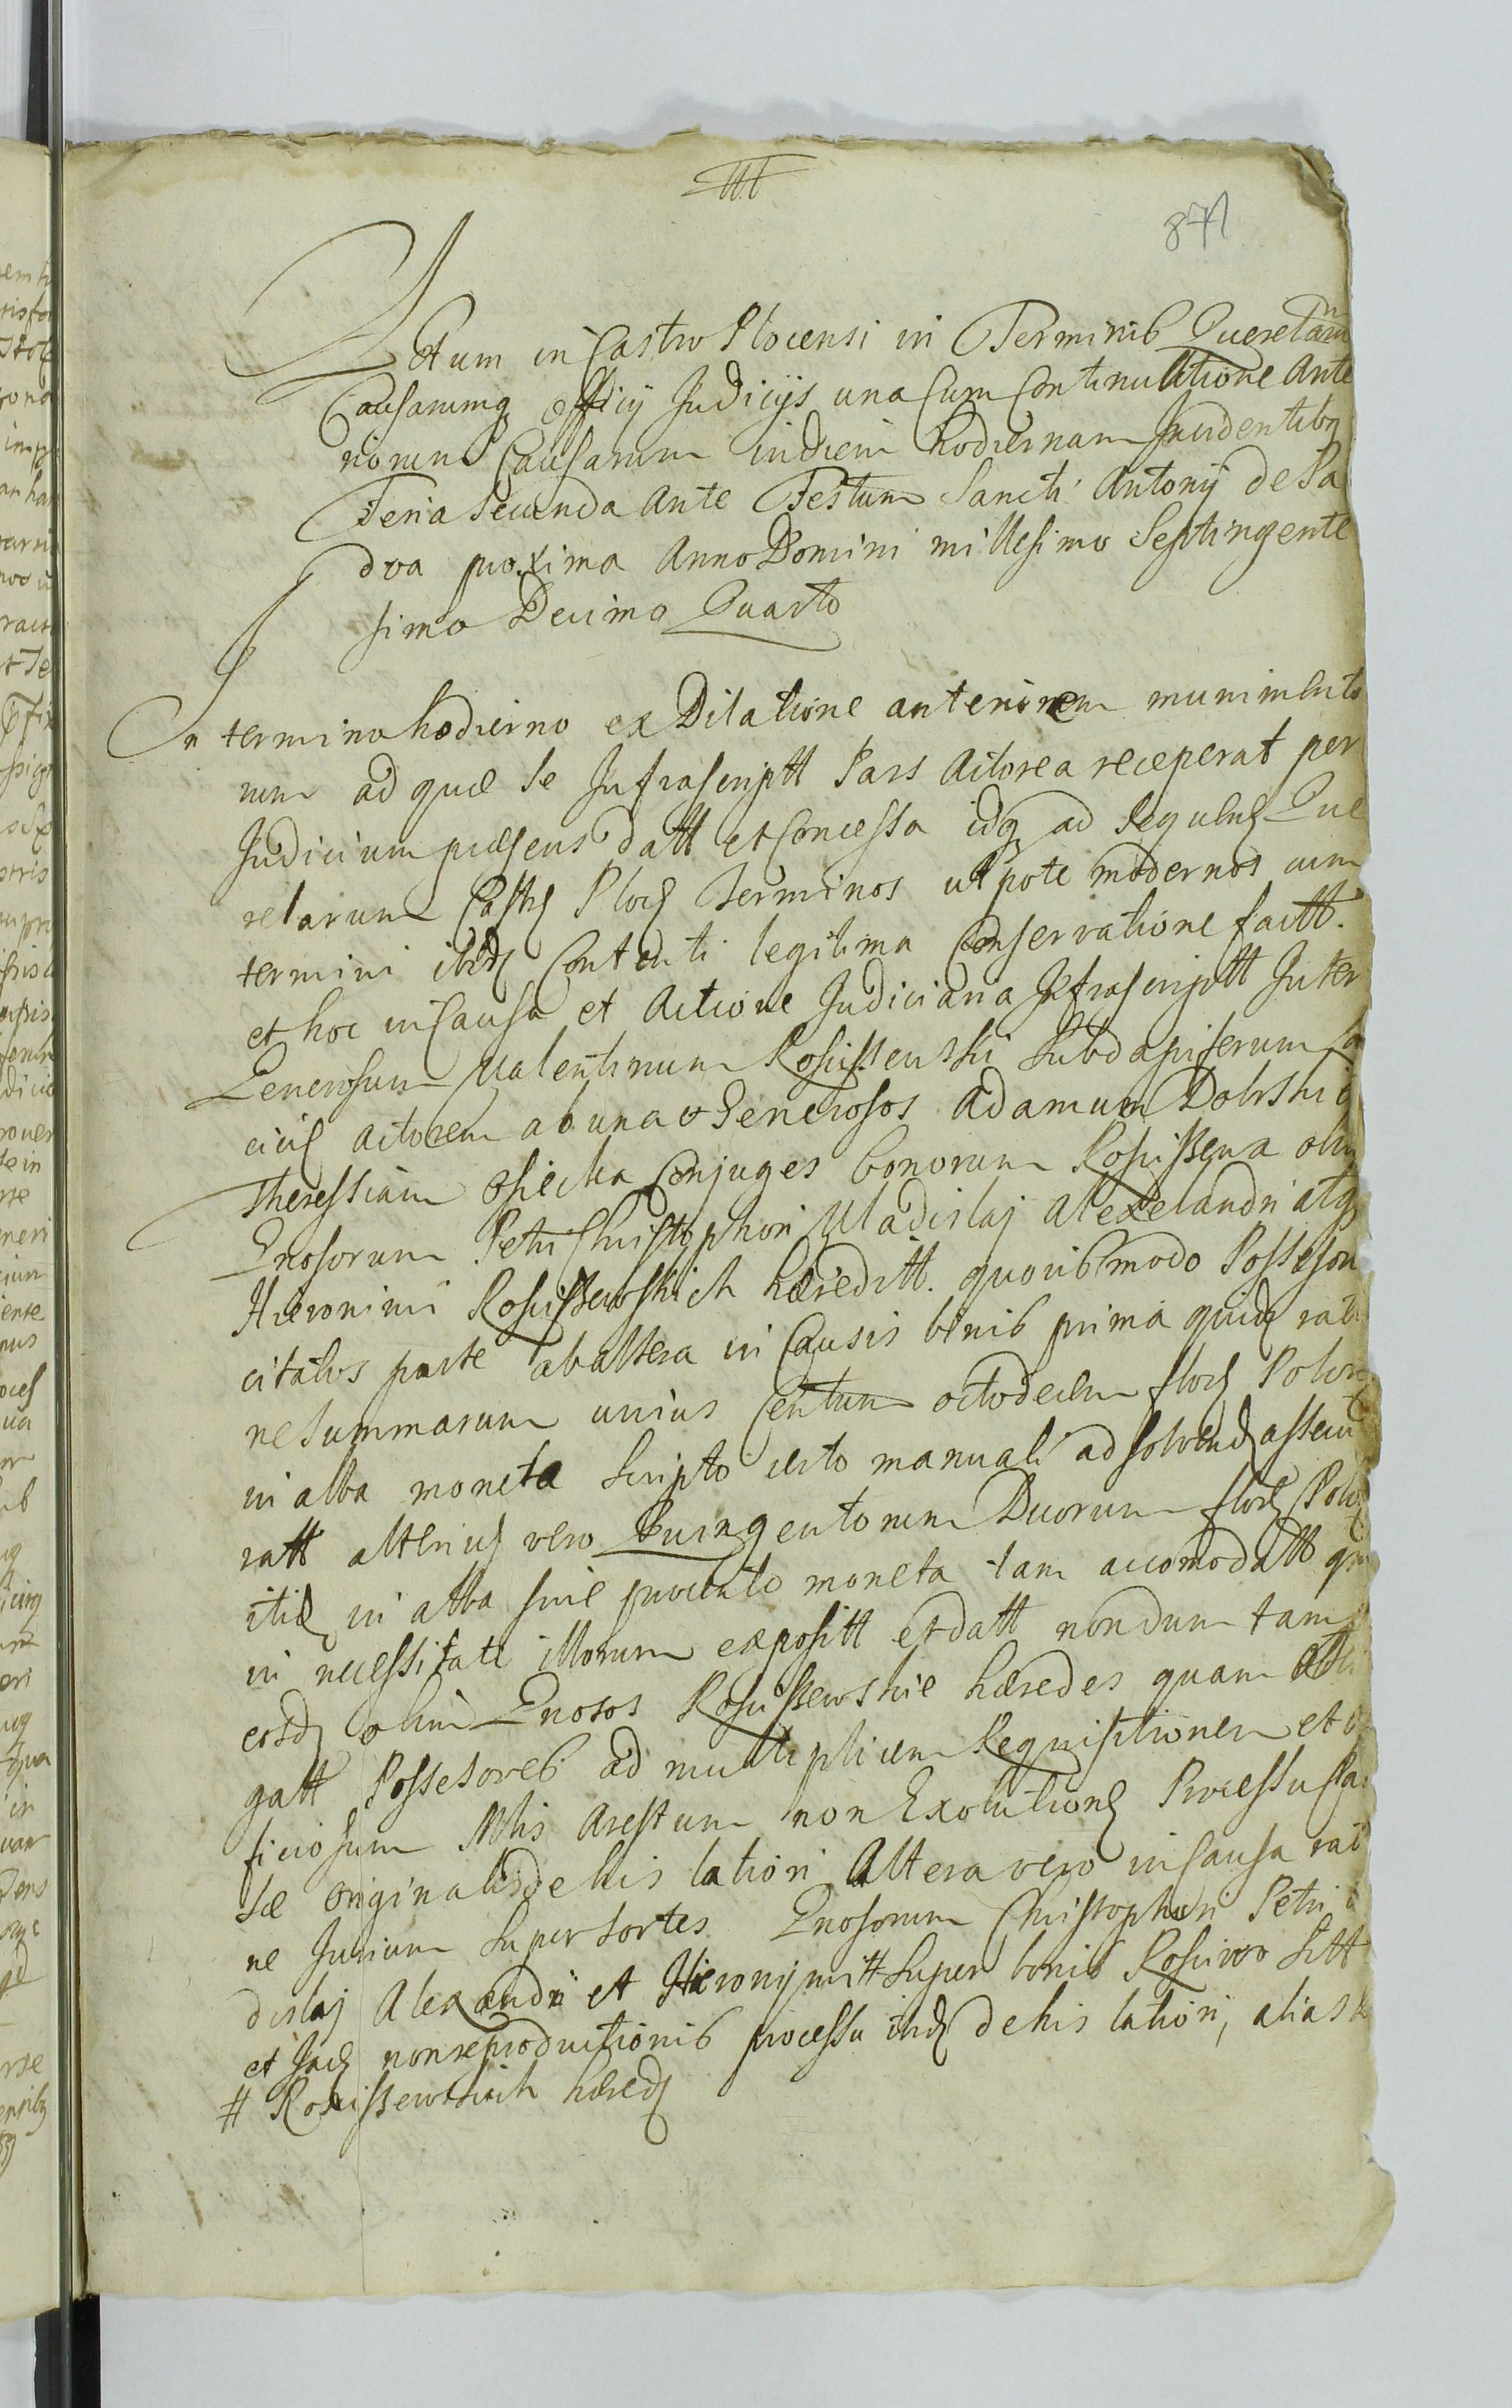 871
Actum in Castro Plocensi in Terminis Querelarum
Causarumq officij Judicijs una Cum Continuatione Ante
riorum Causarum in diem hodiernam Incidentibq
Feria Secunda Ante Festum Sancti Antonij de Pa
dva proxima Anno Domini millesimo Septingente
simo Decimo Quarto
In termino hodierno ex Dilatione anteriorem munimento
rum ad quæ se Infrascriptt Pars Actorea receperat per
Judicium præsens datt et Concessa idq ad sequens Que
relarum Castr Ploc Terminos utpote modernos cum
termini ibid Contenti legitima Conservatione factt.
et hoc in Causa et Actione Judiciaria Infrascriptt Inter
Generosum Valentinum Rosciszewski Subdapiferum
actorem ab una et Generosos Adamum Dobrski
Theressiam Osiecka Conjuges bonorum Rosciszewa olim
Gnosorum Petri Christophori Vladislaj Alexandri atq
Hieronimi Rosciszewskich hæreditt. quovismodo Possesson
citatos parte ab altera in Causis binis prima quid ratio
ne Summarum unius Centum octodecem flor Polon
in alba moneta Scripto certo manuali ad solvend assecu
ratt alterius vero Quingentorum Duorum flor Pol
itid in alba sine procento moneta tam accomodatt
in necessitate illorum expositt et datt nondum tam
eosd olim Gnosos Rosciszewskie hæredes quam
gatt Possesores ad multiplicem Requisitionem et
ficiosum Mlis Arestum non Exolutione Processu
sæ originalis de his latiori Altera vero in Causa ratio
ne Jurium super Sortes Gnosorum Christophori Petri
dislaj Alexandri et Hieronymi # super bonis Rosciszewo Sitt
et Jac non reproductionis processu ind de his latiori, alias
# Rosciszewskich hæred